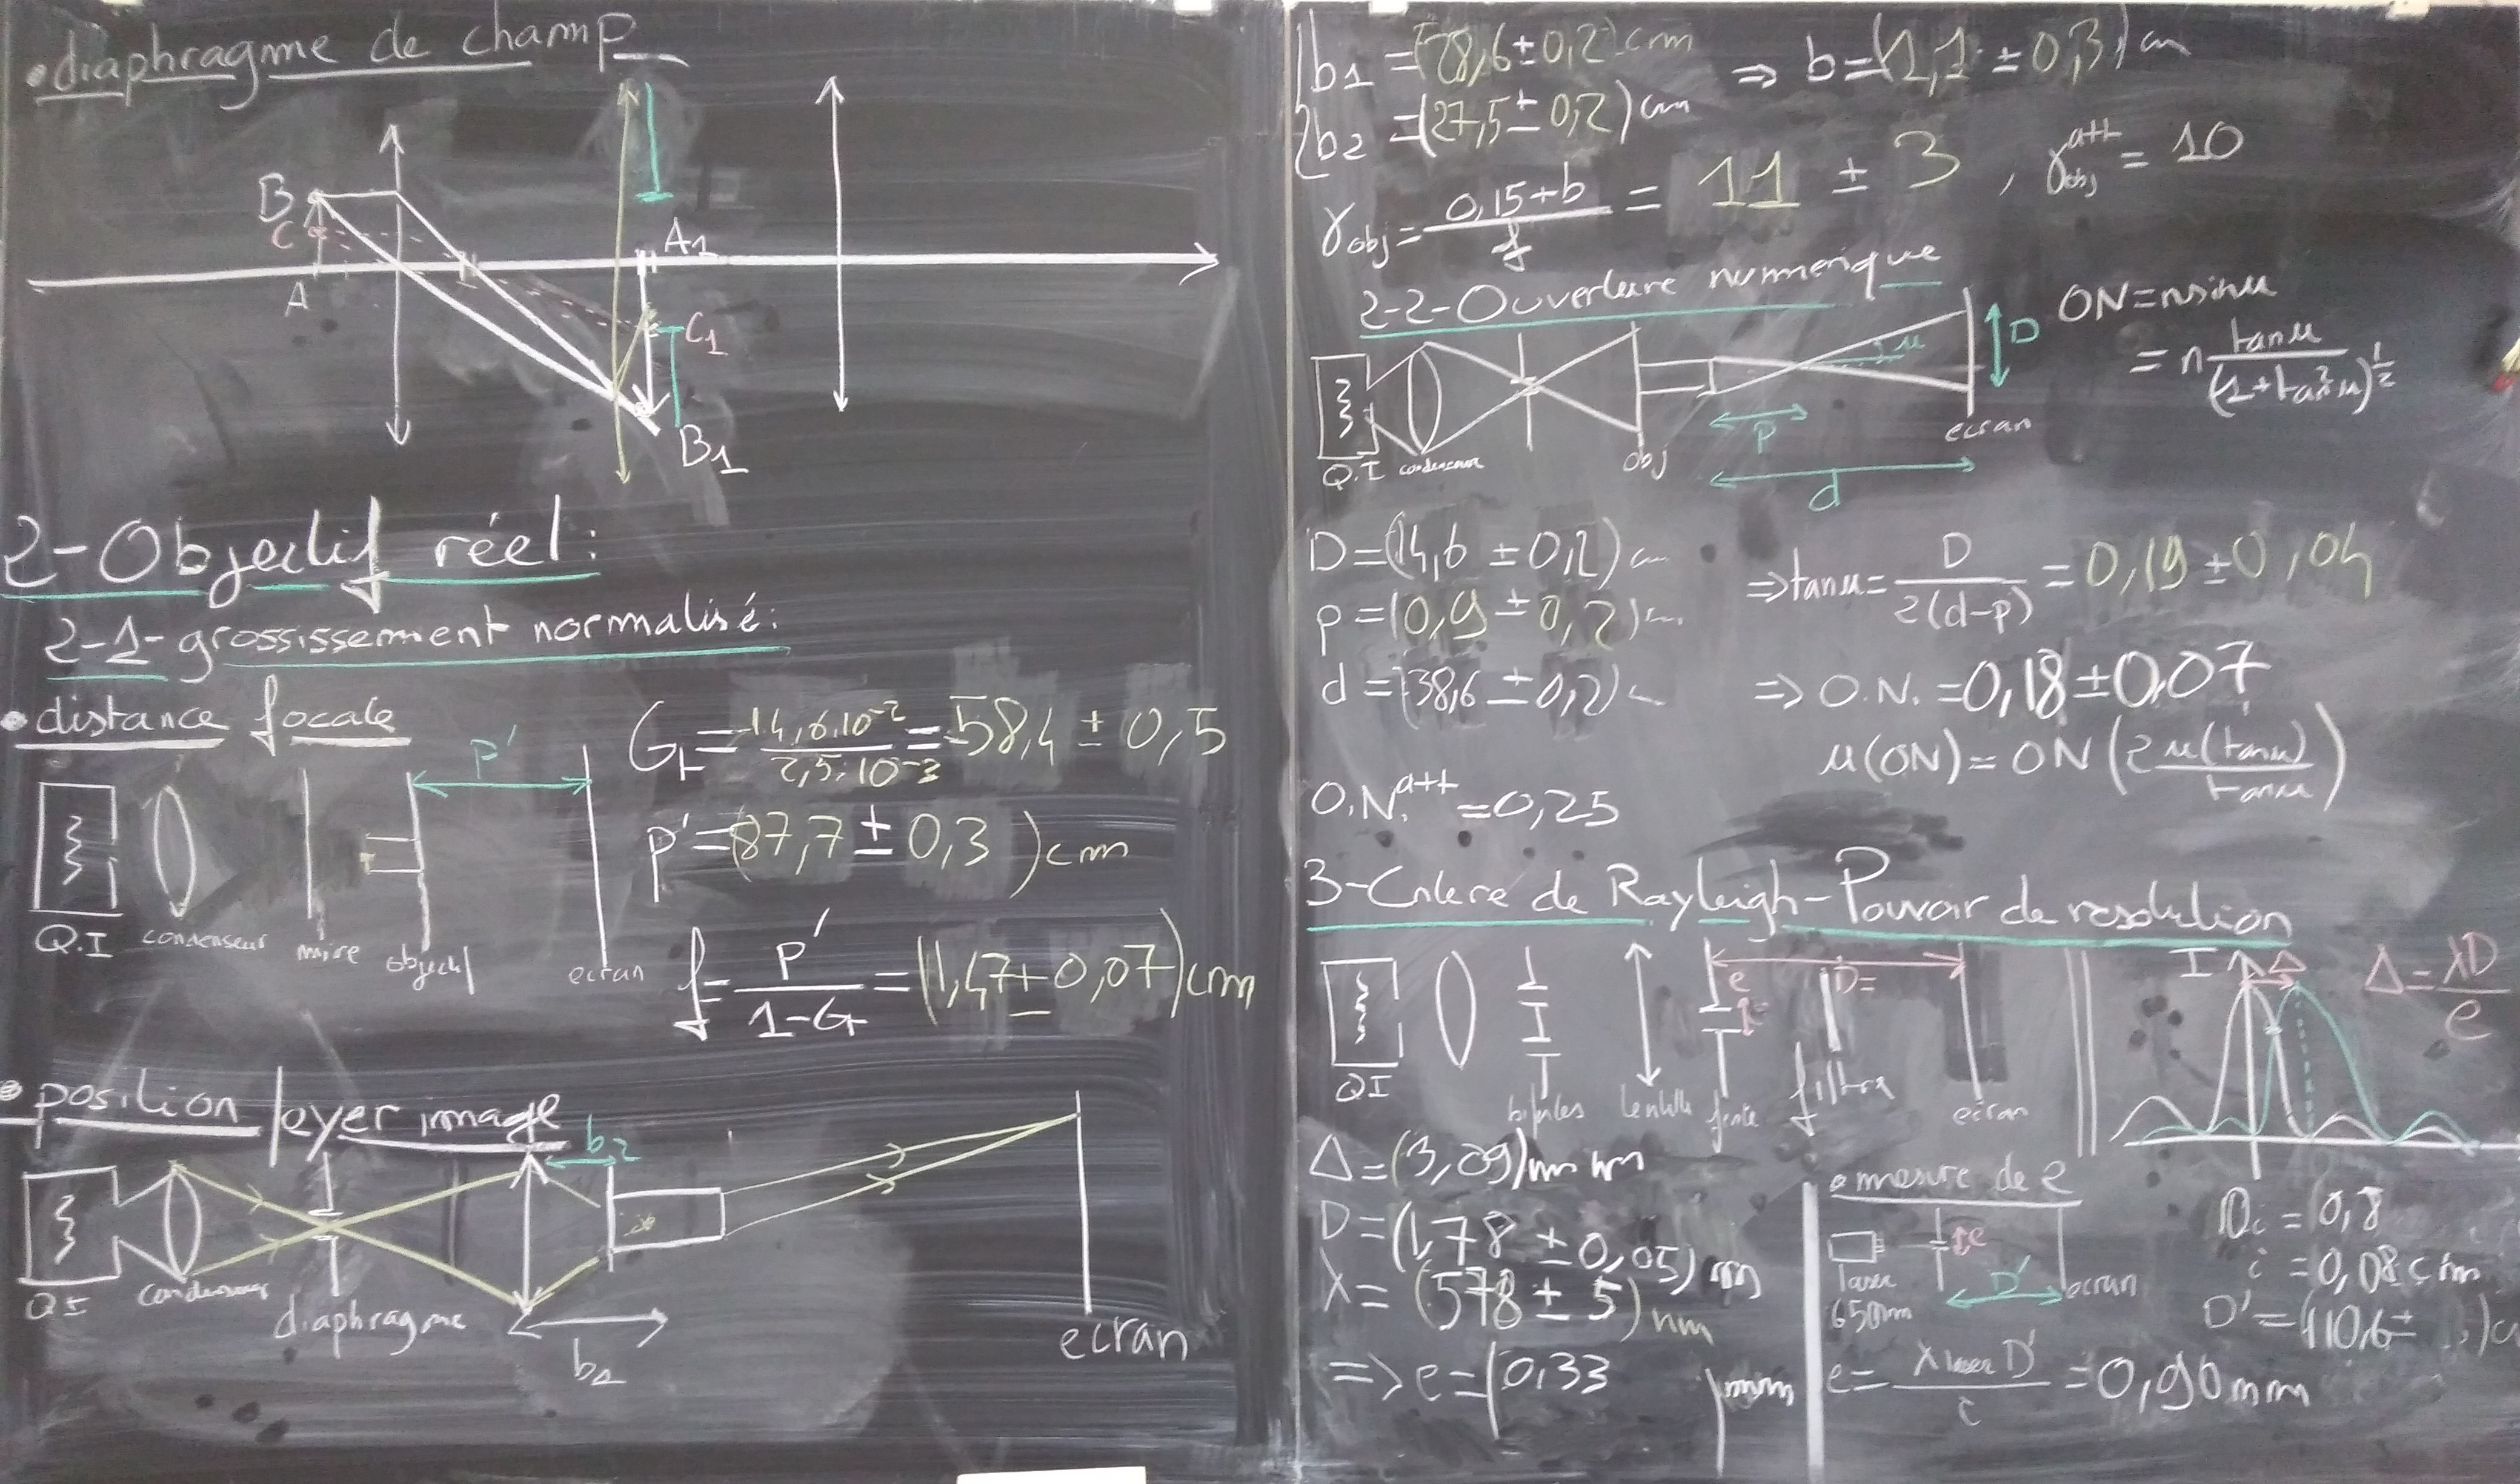 • diaphragme de champ
B
C
A
A1
C1
B1
2-Objectif réel:
2-1-grossissement normalisé:
• distance focale
p'
Q.I condenseur mire objectif ecran
Gt = -14,6.10^-2 / 2,5.10^-3 = -58,4 ± 0,5
p' = (87,7 ± 0,3) cm
f = p' / 1-G = (1,47 ± 0,07) cm
• position foyer image
b2
QI condenseur diaphragme ecran
b1
b1 = (28,6 ± 0,2) cm ⇒ b = (1,1 ± 0,3) cm
b2 = (27,5 ± 0,2) cm
γobj = 0,15+b / f = 11 ± 3 , γobj^att = 10
2-2-Ouverture numerique
ON = n sin u
= n tan u / (1+tan²u)^1/2
D
u
p
d
Q.I condenseur obj ecran
D = (14,6 ± 0,2) cm
p = (0,9 ± 0,2) cm
d = (38,6 ± 0,2) cm
⇒ tan u = D / 2(d-p) = 0,19 ± 0,04
⇒ O.N. = 0,18 ± 0,07
u(ON) = ON (2 u(tan u) / tan u)
O.N.^att = 0,25
3-Critere de Rayleigh-Pouvoir de resolution
e D=
QI bifentes lentille fente filtre ecran
I Δ
Δ = λD / e
Δ = (3,09) mm
D = (1,78 ± 0,05) m
λ = (578 ± 5) nm
⇒ e = (0,33 ) mm
• mesure de e
e
D'
laser 650nm ecran
e = λlaser D' / i = 0,90 mm
10i = 0,8
i = 0,08 cm
D' = (110,6 ± ) c